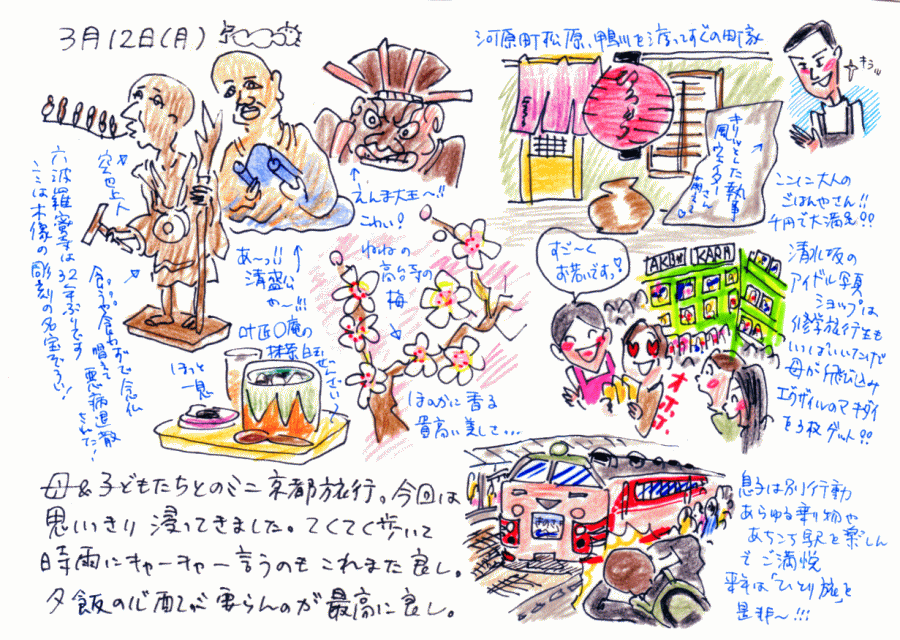 3月12日(月)
空也上人
六波羅蜜寺は32年ぶりです
ここは木像の彫刻の名宝ぞろい!
食うや食わずで念仏
唱えて悪病退散
えんま大王〜!!
こわい!
あ〜っ!!
清盛公
か〜!!!
叶匠〇庵の
抹茶白玉
ぜんざい
ほっと
一息
ねねの
高台寺の
梅
ほのかに香る
貴高い美しさ…
河原町松原、鴨川を渡ってすぐの町家
キリッとした執事
風ウェイター
さん
キラッ
ここに大人の
ごはんやさん!!
千円で大満足!!
すご〜く
お若いです!
AKB48
KARA
オホホ
清水坂の
アイドル写真
ショップは
修学旅行生も
いっぱいいたけど
母が飛び込み
エグザイルのマキダイ
を3枚ゲット!!
息子は別行動
あらゆる乗り物や
あちこち駅を楽しん
でご満悦
来年は「ひとり旅」を
是非〜!!!
母&子どもたちとのミニ京都旅行。今回は
思いっきり浸ってきました。てくてく歩いて
時雨にキャーキャー言うのもこれまた良し。
夕飯の心配が要らんのが最高に良し。